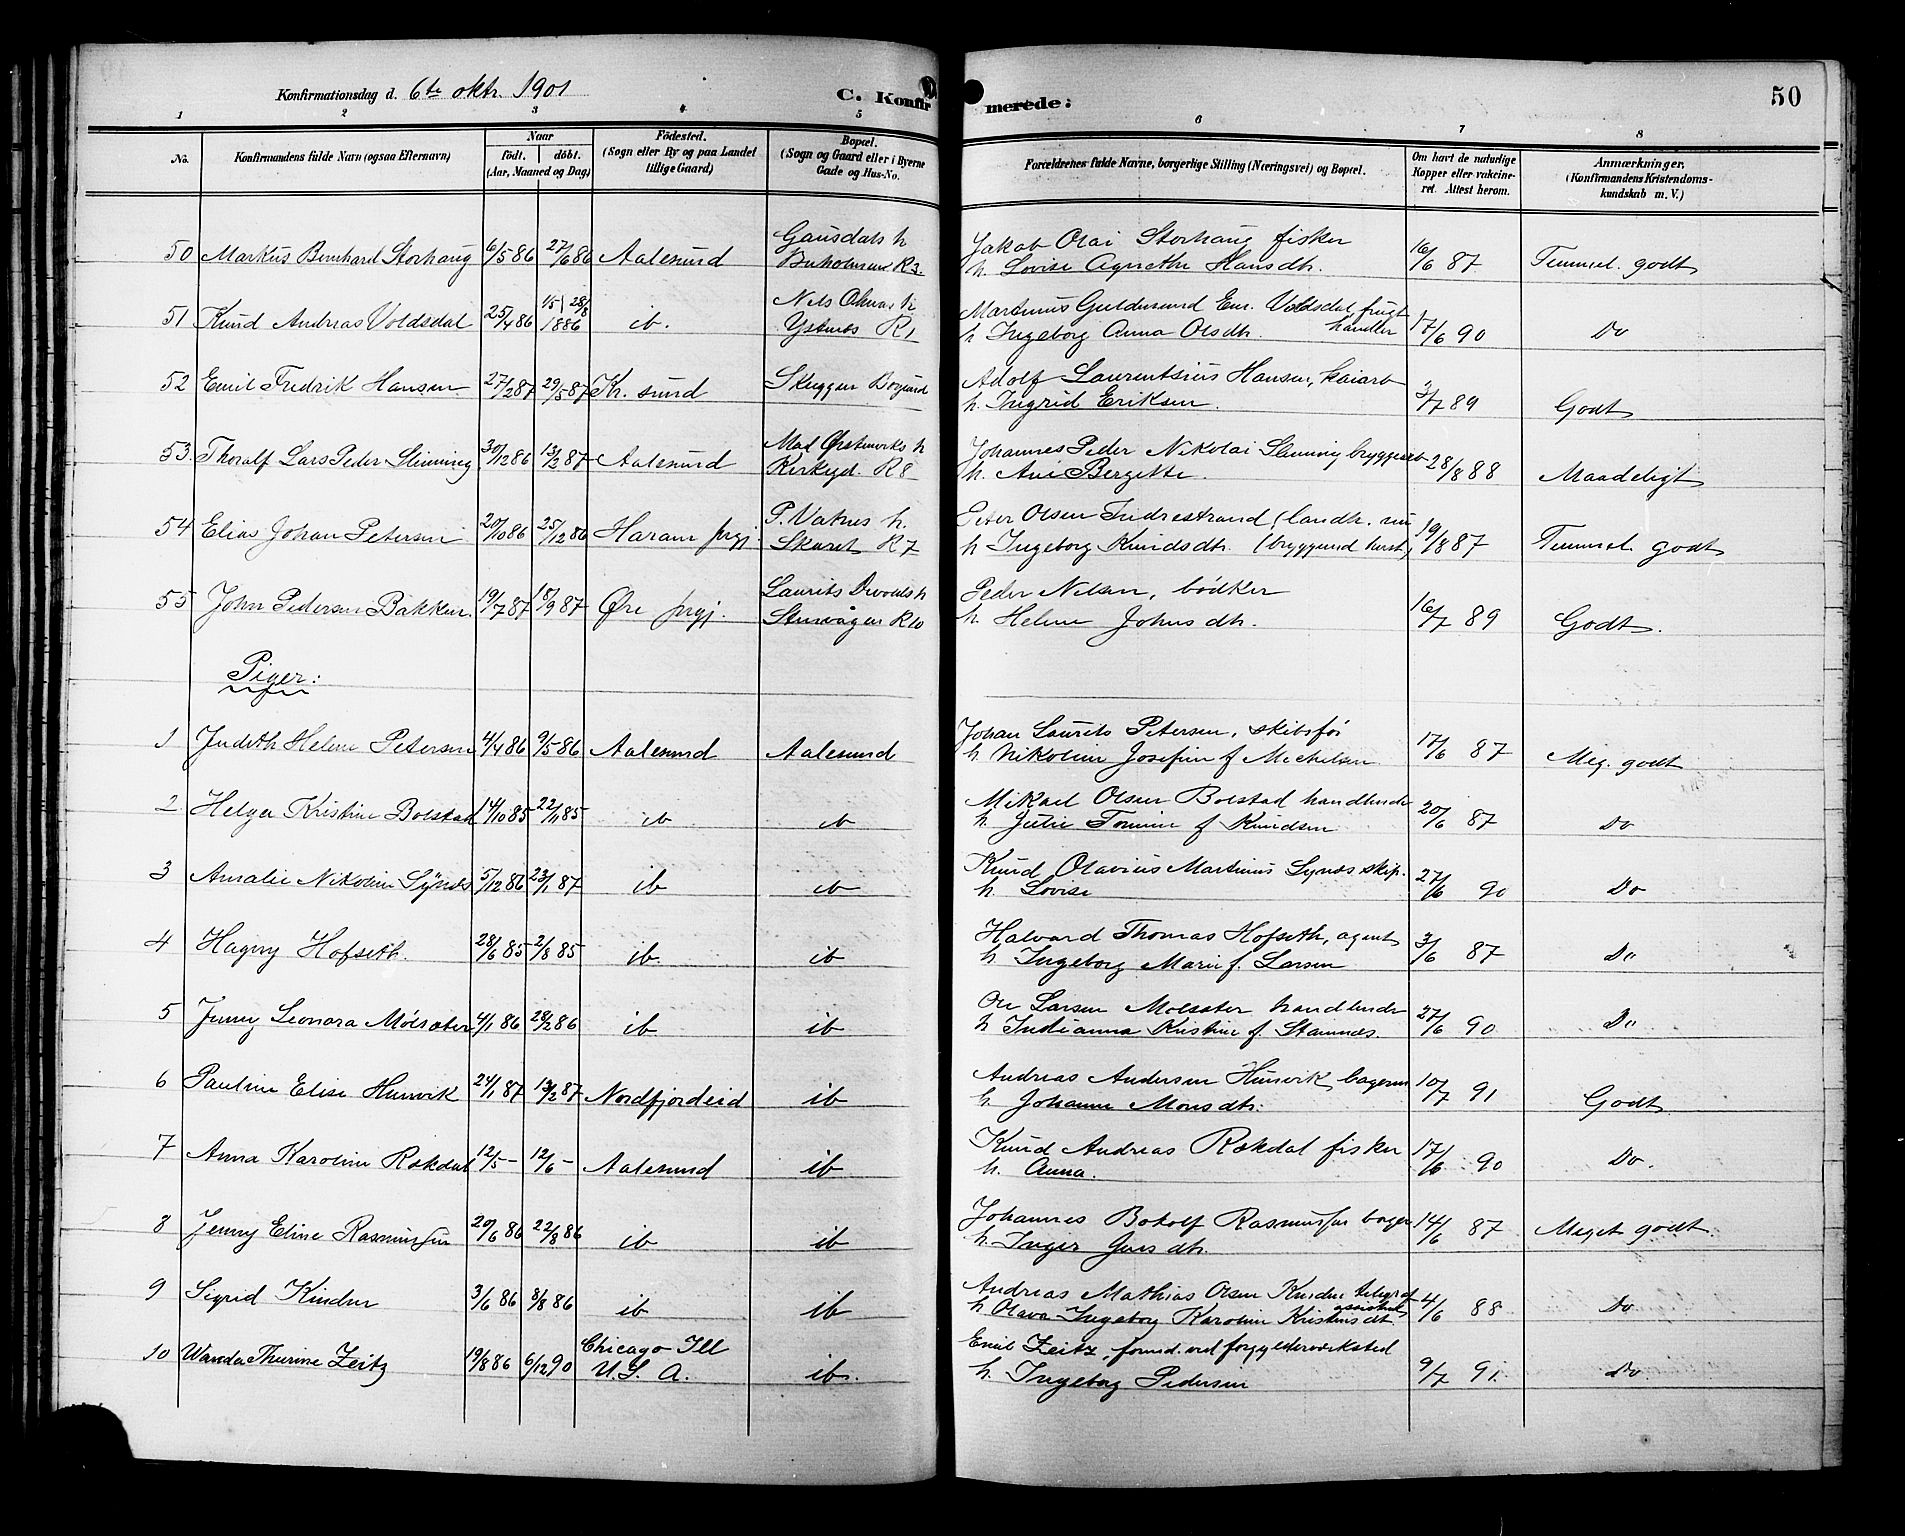 Konfirmationsdag d. 6te oktr. 1901
C. Konfirmerede:
50
1 2 3 4 5 6 7 8
No.
Konfirmandens fulde Navn (ogsaa Efternavn)
Naar
födt. döbt.
(Aar, Maaned og Dag)
Födested.
(Sogn eller By og paa Landet tillige Gaard)
Bopæl.
(Sogn og Gaard eller i Byerne Gade og Hus-No.
Forældrenes fulde Navne, borgerlige Stilling (Næringsvei) og Bopæl.
Om havt de naturlige Kopper eller vakcineret. Attest herom.
Anmærkninger.
(Konfirmandens Kristendomskundskab m. V.)
50 Markus Bernhard Storhaug 6/5 86 27/6 86 Aalesund Gausdals h Buholmen R3 Jakob Olai Storhaug fisker 16/6 87 Temmel. godt
h. Lovise Agnethe Hansdtr.
51 Knud Andreas Voldsdal 25/4 86 15/ 28/8 1886 ib. Nils h Ystenes R1 Martinus Guldesund Voldsdal, frugthandler 17/6 90 Do
h Ingeborg Anna Olsdtr.
52 Emil Fredrik Hansen 27/2 87 29/5 87 Kr. sund Skuggen Borgund Adolf Laurentsius Hansen, kaiarb 3/7 89 Godt
h. Ingrid Eriksen.
53. Thoralf Lars Peder Slinning 30/12 86 13/2 87 Aalesund Mad Ørstenviks h Kirkegd. R8 Johannes Peder Nikolai Slinning bryggearb 28/8 88 Maadeligt
h. Ane Bergette.
54 Elias Johan Petersen 20/10 86 25/12 86 Haram prgj. P. Vatnes h. Skaret R7 Peter Olsen Indrestrand (landh. nu 19/8 87 Temmel. godt
h Ingeborg Knudsdtr.
55 John Pedersen Bakken 19/7 87 18/9 87 Øre prgj. Laurits Devolds h Stenvågen R10 Peder Nilsen, bödker 16/7 89 Godt.
h. Helene Johnsdtr.
Piger:
1 Judith Helene Petersen 4/4 86 9/5 86 Aalesund Aalesund Johan Laurits Petersen, skibsfø 17/6 87 Meg. godt
h. Nikoline Josefine f Mechelsen
2 Helga Kristine Bolstad 14/10 85 22/11 85 ib ib Mikael Olsen Bolstad handlende 20/6 87 Do
h. Julie Tomine f Knudsen
3 Amalie Nikoline Synes 5/12 86 23/1 87 ib ib Knud Olavius Martinus Synes skip. 27/6 90 Do
h. Lovise
4 Hagny Hofseth. 28/6 85 2/8 85 ib. ib Halvard Thomas Hofseth, agent 3/6 87 Do
h Ingeborg Marie f. Larsen
5 Jenny Leonora Mölsæter 4/1 86 28/2 86 ib ib Ole Larsen Molsæter handlende 27/6 90 Do
h Indianna Kristine f. Stamnes.
6 Pauline Elise Hunvik 24/1 87 13/2 87 Nordfjordeid ib Andreas Andersen Hunvik bagerm 10/7 91 Godt
h. Johanne Monsdtr.
7 Anna Karoline Rækdal 12/5 - 12/6 - Aalesund ib Knud Andreas Rækdal fisker 17/6 90 Do.
h. Anna.
8 Jenny Eline Rasmussen 20/6 86 22/8 86 ib ib Johannes Botolf Rasmussen bager 14/6 87 Meget godt.
h. Inger Jensdtr.
9 Sigrid Kinden 3/6 86 8/8 86 ib ib Andreas Mathias Olsen Kinden telegrafassistent 4/6 88 Do
h Olava Ingeborg Karoline Kristensdt.
10 Wanda Thurine Zeitz 19/8 86 6/12 90 Chicago Ill U.S.A. ib. Emil Zeitz, formd. ved forgylderværksted 9/7 91 Do
h. Ingeborg Pedersen